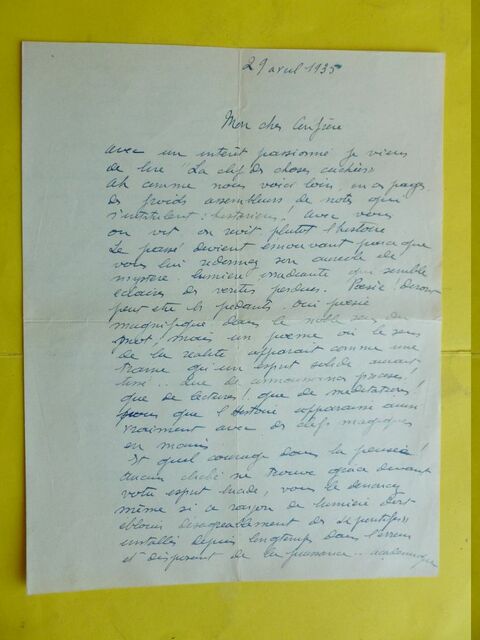 29 avril 1935
Mon cher Confrère
avec un intérêt passionné je viens
de lire "La clef des choses cachées"
Ah comme nous voici loin, en ces pages
des froids assembleurs de notes qui
s'intitulent : historiens ! avec vous
on vit on revit plutôt l'histoire
Le passé devient émouvant parce que
vous lui redonnez son auréole de
mystère. lumière irradiante qui semble
éclairer des vérités perdues. Poésie ! diront
peut être les pédants. oui poésie
magnifique dans le noble sens du
mot, mais un poème où le sens
de la réalité apparait comme une
trame qu'un esprit solide aurait
tissé .. que de
que de lectures ! que de méditations !
pour que l'histoire apparaisse aussi
vraiment avec des clefs magiques
en mains
Et quel courage dans la pensée !
aucun cliché ne trouve grâce devant
votre esprit vous le dénoncez
même si ce rayon de lumière doit
éblouir désagréablement des
installés depuis longtemps dans l'erreur
et disposant de la puissance .. académique